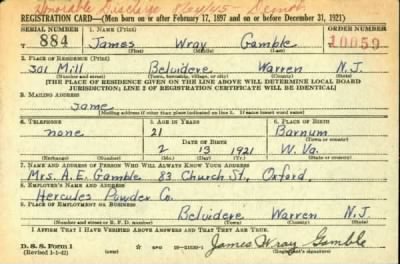 Honorable Discharge
REGISTRATION CARD—(Men born on or after February 17, 1897 and on or before December 31, 1921)
SERIAL NUMBER
1. NAME (Print)
ORDER NUMBER
884
James Wray Gamble
10059
(First) (Middle) (Last)
2. PLACE OF RESIDENCE (Print)
301 Mill Belvidere Warren N.J.
(Number and street) (Town, township, village, or city) (County) (State)
[THE PLACE OF RESIDENCE GIVEN ON THE LINE ABOVE WILL DETERMINE LOCAL BOARD
JURISDICTION; LINE 2 OF REGISTRATION CERTIFICATE WILL BE IDENTICAL]
3. MAILING ADDRESS
Same
[Mailing address if other than place indicated on line 2. If same insert word same]
4. TELEPHONE
5. AGE IN YEARS
6. PLACE OF BIRTH
none
21
Barnum
DATE OF BIRTH
(Town or county)
2 13 1921
W. Va.
(Exchange) (Number) (Mo.) (Day) (Yr.) (State or country)
7. NAME AND ADDRESS OF PERSON WHO WILL ALWAYS KNOW YOUR ADDRESS
Mrs. A.E. Gamble 83 Church St., Oxford,
8. EMPLOYER'S NAME AND ADDRESS
Hercules Powder Co.
9. PLACE OF EMPLOYMENT OR BUSINESS
Belvidere Warren N.J.
(Number and street or R. F. D. number) (Town) (County) (State)
I AFFIRM THAT I HAVE VERIFIED ABOVE ANSWERS AND THAT THEY ARE TRUE.
D. S. S. Form 1
(Revised 1-1-42)
GPO
James Wray Gamble